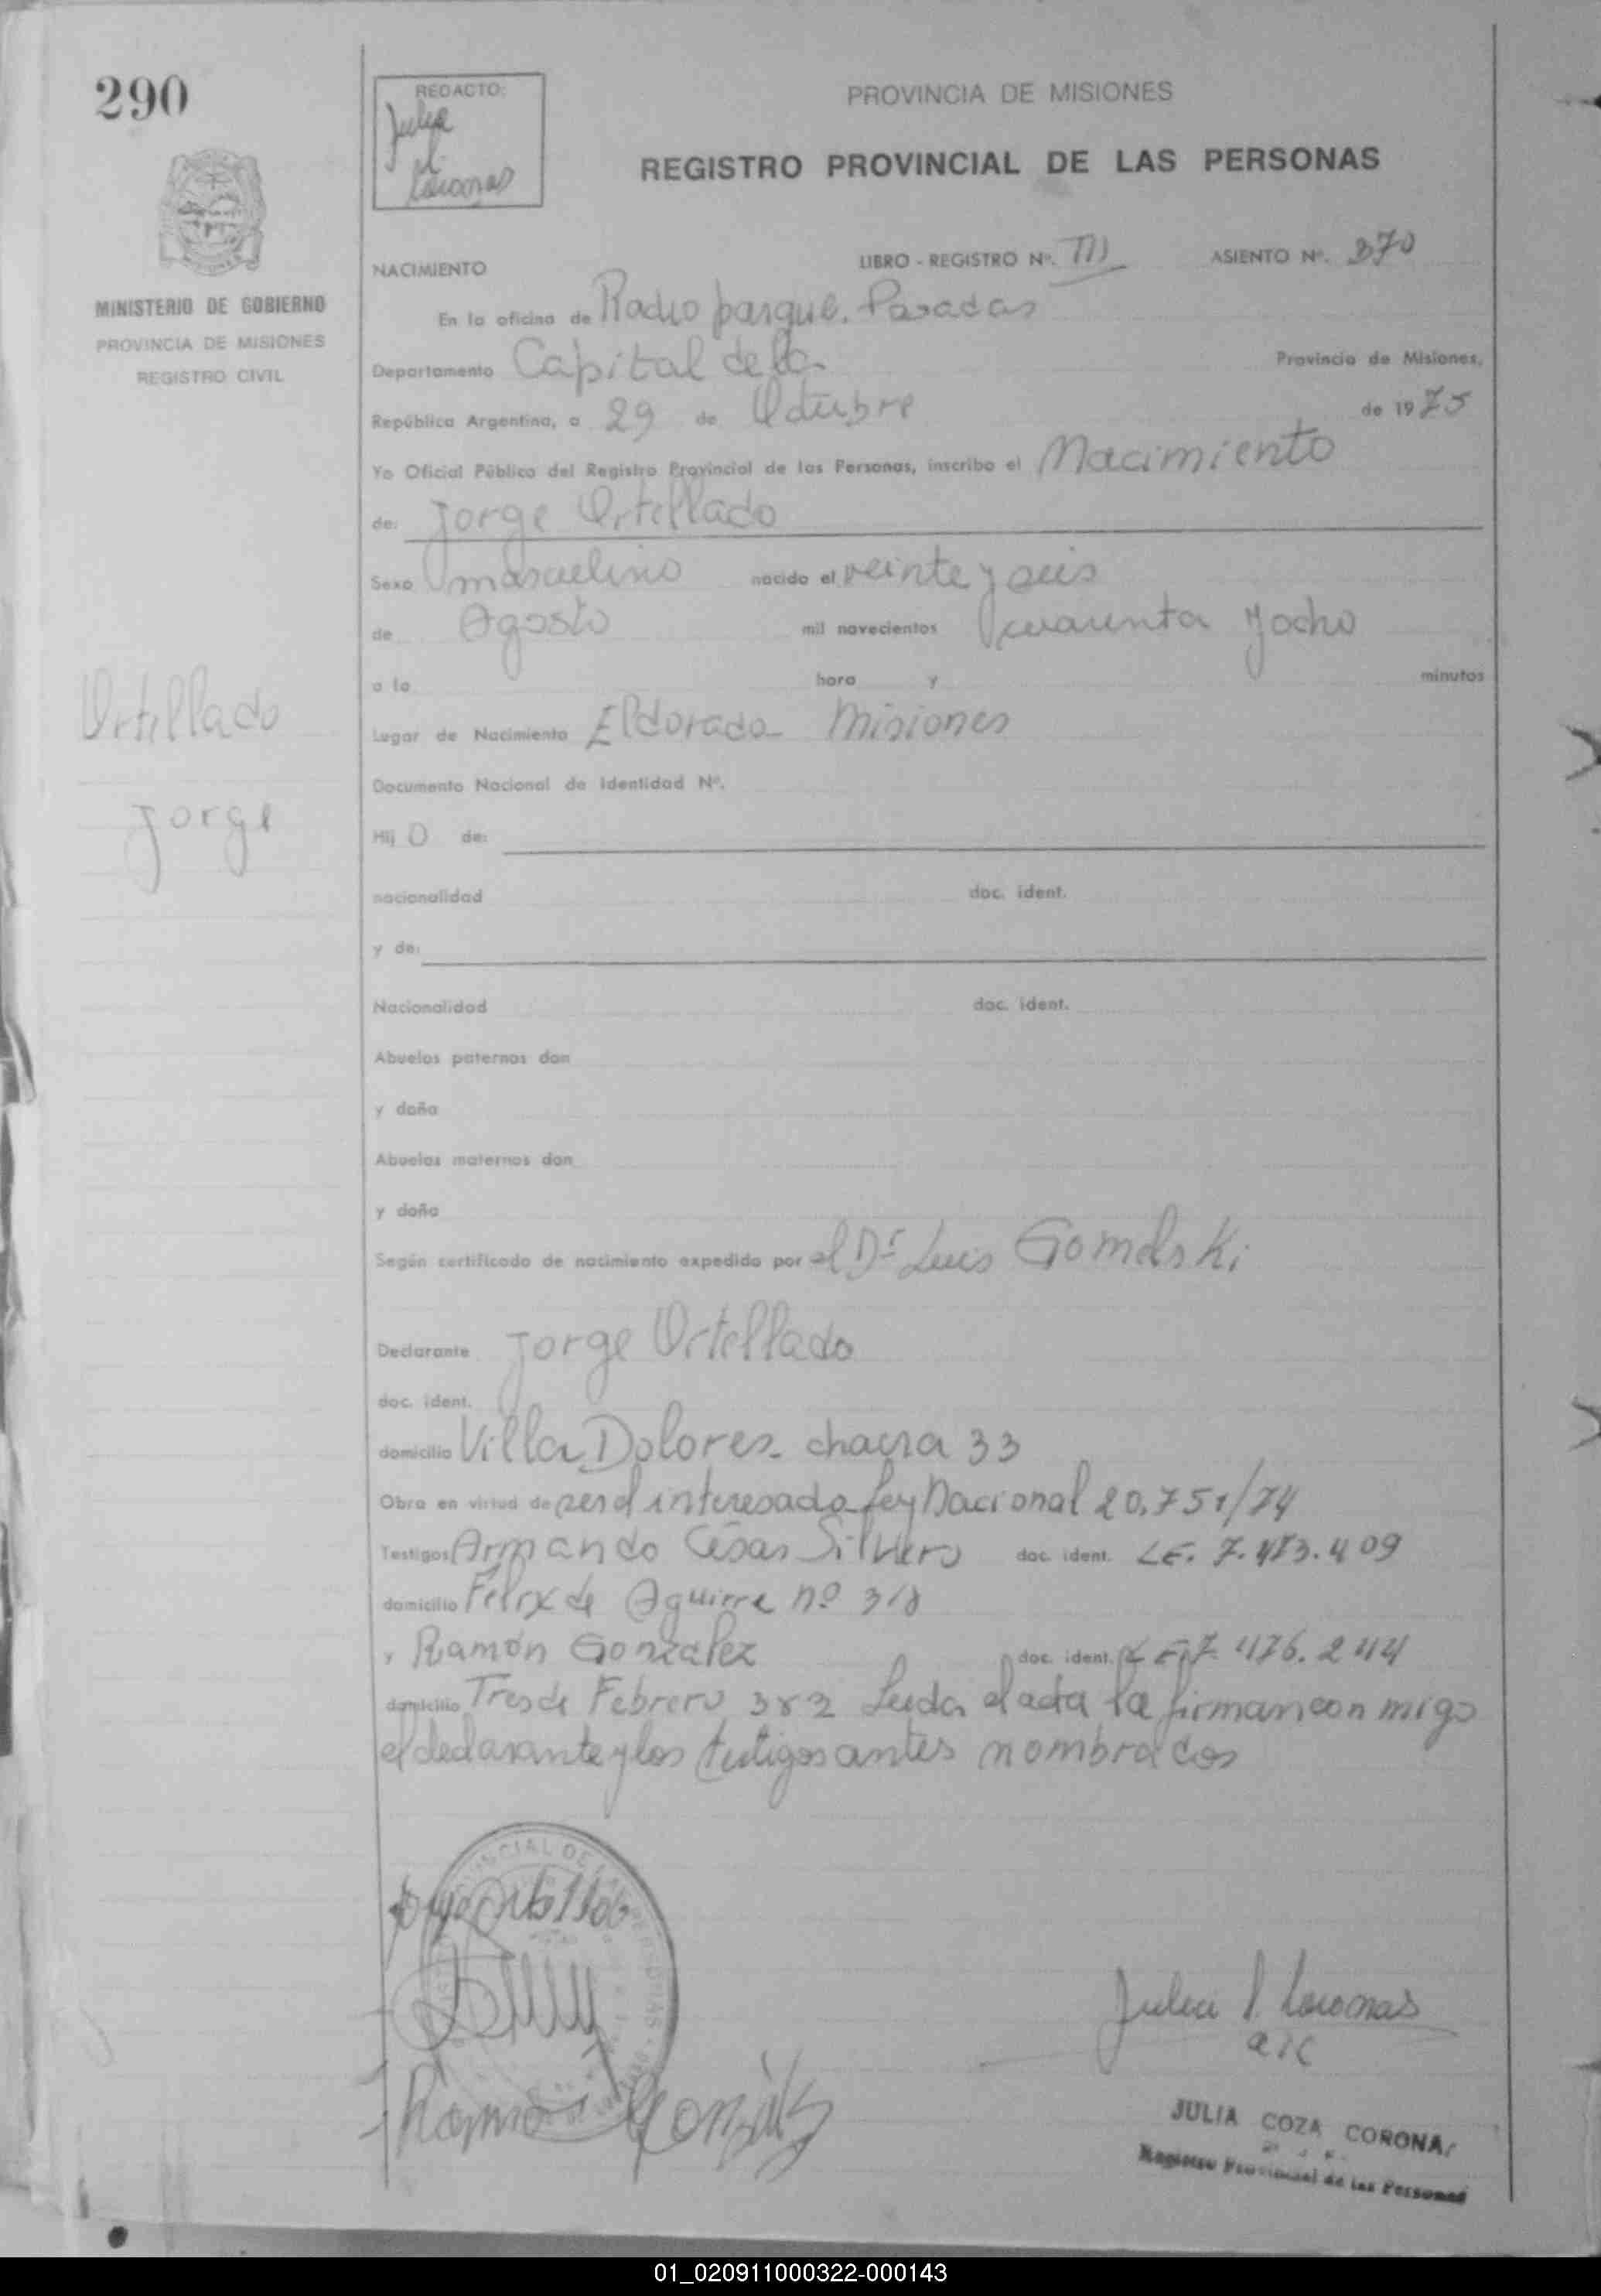 290
REDACTO:
Julia
Coronas
PROVINCIA DE MISIONES
REGISTRO PROVINCIAL DE LAS PERSONAS
MINISTERIO DE GOBIERNO
PROVINCIA DE MISIONES
REGISTRO CIVIL
NACIMIENTO LIBRO - REGISTRO Nº. III ASIENTO Nº. 370
En la oficina de Radio parque. Posadas
Departamento Capital de la Provincia de Misiones,
República Argentina, a 29 de Octubre de 1975
Yo Oficial Público del Registro Provincial de las Personas, inscribo el Nacimiento
de: Jorge Ortellado
Sexo masculino nacido el veinte y seis
de Agosto mil novecientos cuarenta y ocho
a la hora y minutos
Ortellado
Jorge
Lugar de Nacimiento Eldorado Misiones
Documento Nacional de Identidad Nº.
Hij O de:
nacionalidad doc. ident.
y de:
Nacionalidad doc. ident.
Abuelos paternos don
y doña
Abuelos maternos don
y doña
Según certificado de nacimiento expedido por el Dr Luis
Declarante Jorge Ortellado
doc. ident.
domicilio Villa Dolores chacra 33
Obra en virtud de ser el interesado Ley Nacional 20.751/74
Testigos Armando César Silvero doc. ident. LE. 7.483.409
domicilio Felix de Aguirre nº 318
y Ramón González doc. ident. LE 7.476.244
domicilio Tres de Febrero 382 Leida el acta la firman con migo
el declarante y los testigos antes nombrados
Jorge Ortellado
Ramon Gonzalez
Julia Coronas
JULIA COZA CORONA
Registro Provincial de las Personas
01_020911000322-000143